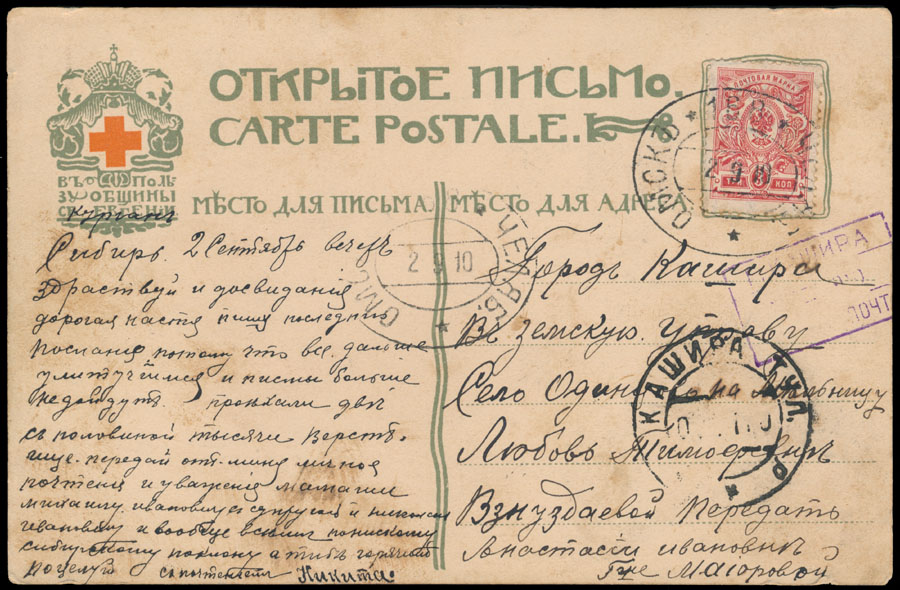 ОТКРЫТОЕ ПИСЬМО.
CARTE POSTALE.
ВЪ ПОЛЬ
ЗУ ОБЩИНЫ
СВ. ЕВГЕНІИ
МѢСТО ДЛЯ ПИСЬМА
МѢСТО ДЛЯ АДРЕСА
ПОЧТОВАЯ МАРКА
3 КОП
ОМСКЪ
2 9 10
ЧЕЛЯБ.
ОМС
2 9 10
КАШИРА
ПОЧТ
КАШИРА ТУЛ. Г.
Курганъ
Сибирь. 2 Сентябрь вечеръ
здраствуй и досвидания
дорогая настя пишу последнiь
послание потому что все дальше
улитучимся и писмы больше
не дойдутъ. проѣхали двѣ
съ половиной тысячи верстъ.
ище. передай отъ миня личное
почтение и уважения мамаши
михаилу ивановичу съ супругой и николаю
ивановичу и вообще всемъ по нискому
сибирскому поклону а тибѣ горячий
поцелуй
съ почтениемъ Никита.
Городъ Кашира
Въ земскую. управу
Село на Мѣльницу
Любовь Тимофевнѣ
Взнуздаевой Передать
Анастасiи ивановнѣ
Гже Маіоровой